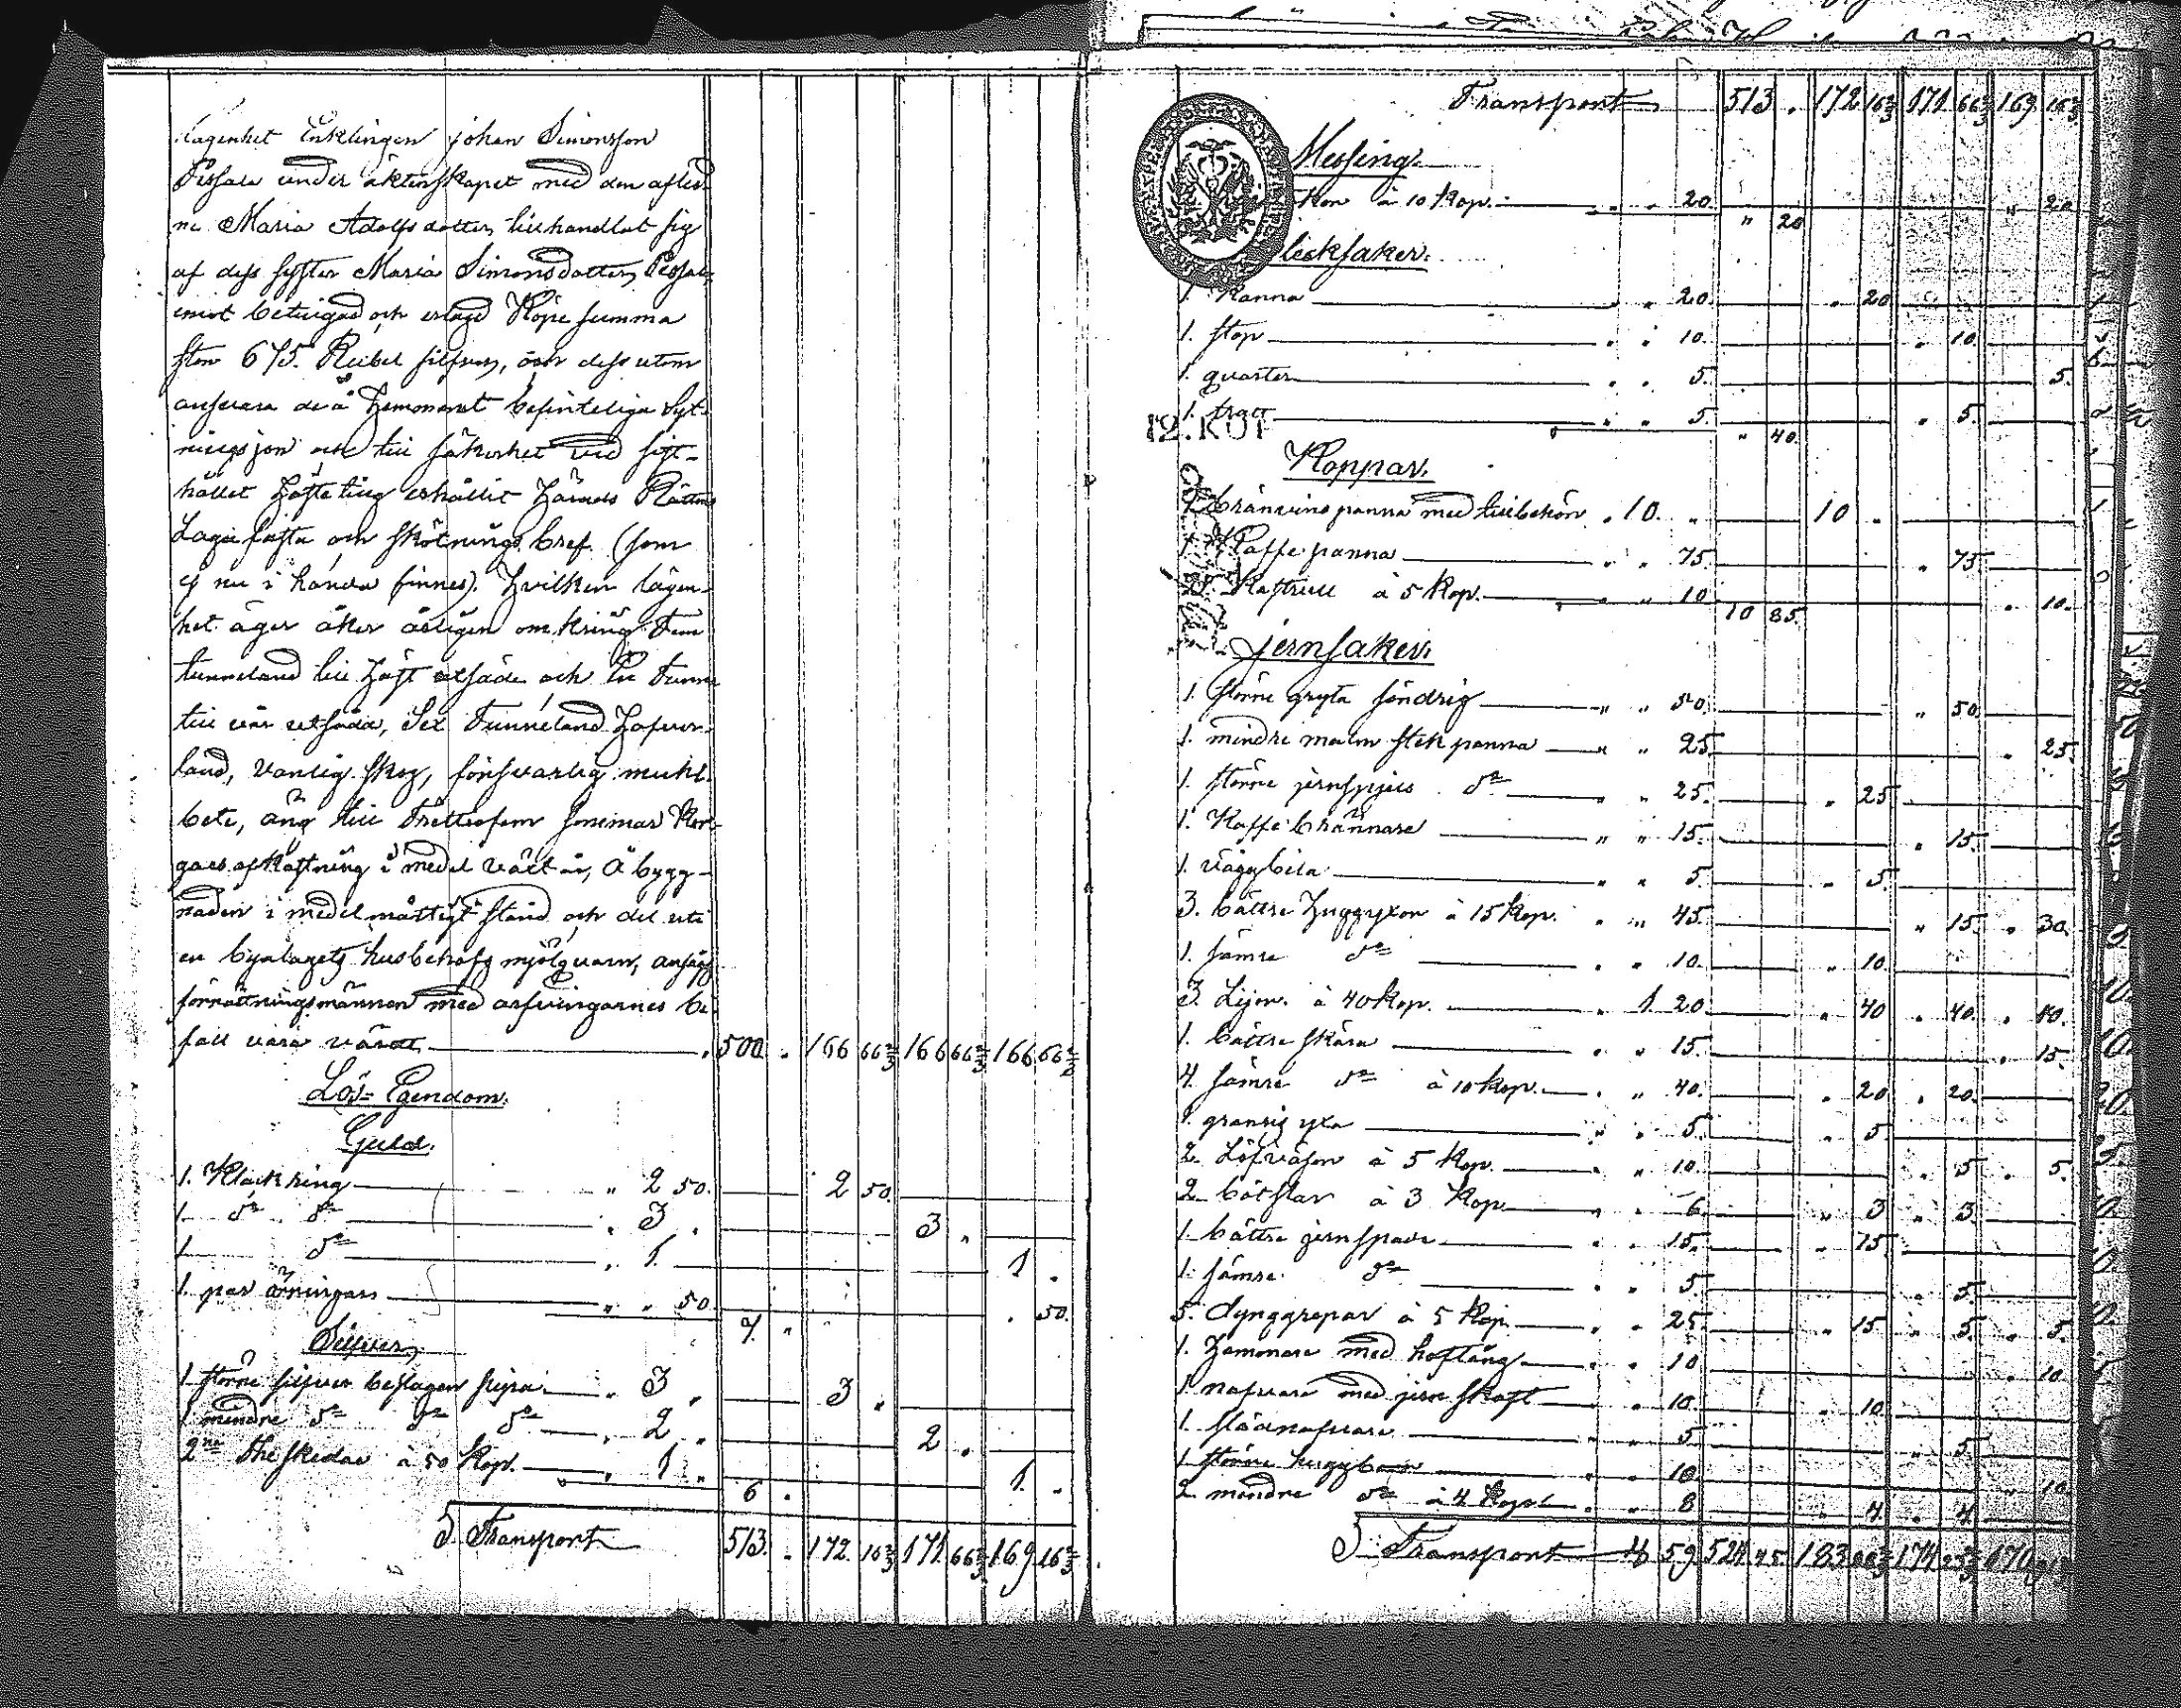 lagenhet Enklingen Johan Simonsson
Pissala under äktenskapet med den aflid-
na Maria Adolfsdotter, tillhandlat sig
af dess syster Maria Simonsdotter Pissala,
emot betingad och erlagd Köpe summa
stor 675. Rubel silfver, och dess utom
ansvara de å Hemmanet befinteliga Syt-
ningsjon och till säkerhet vid sist-
hållet Höste ting erhållit Härads Rättens
Laga fasta och skötnings bref. (som
ej nu i handa finnes). Hvilken lägen-
het äger åker årligen omkring Fem
tunneland till Höst utsäde och En Tunne
till vår utsäde, Sex Tunneland Hafver-
land, vanlig skog, försvarlig muhl-
bete, äng till Trettiofem sommar
gars afkastning i medel växt år, Åbygg-
naden i medelmåttigt stånd och del uti
en byalagets husbehofs mjölqvarn, ansågs
förrättningsmännen med arfvingarnes bi-
fall vara värdt 500 . 166 66⅔ 166 66⅔ 166 66⅔
Lös-Egendom.
Guld.
1. Klackring " 2 50. 2 50.
1 dº dº " 3 . 3 .
1 dº " 1. 1 .
1. par örringar " " 50. 7. " . 50.
Silfver
1 större silfver beslagen pipa " 3 " 3 "
1 mindre dº dº dº " 2 " 2 .
2ne The skedar à 50 Kop. " 1 " 6 . 1. .
Transport 513. . 172. 16⅔ 171. 66⅔ 169 16⅔
Transport 513 . 172 16⅔ 171. 66⅔ 169 16⅔
Messing.
kon à 10 Kop. " " 20. " 20 " 20
lecksaker.
1. Kanna " " 20. " 20
1. stop " " 10. " 10.
1. quarter " " 5. 5.
1. tratt " " 5. " 40. " 5.
12. KOP
Koppar.
1. bränvins panna med tillbehör . 10. " 10 "
1. Kaffe panna " " 75. " 75.
2. Kastrull à 5 Kop. " " 10 10 85. " 10.
Jernsaker.
1. större gryta söndrig " " 50. " 50.
1. mindre malm stek panna " " 25. " 25.
1. större jernspjels dº " " 25. " 25
1. Kaffe brännare " " 15. " 15.
1. väggbila " " 5. " 5.
3. bättre huggyxor à 15 Kop. " " 45. " 15. " 30.
1. sämre dº " " 10. " 10.
3. Lijor. à 40 Kop. " 1 20. " 40 " 40. " 40.
1. bättre skära " " 15. " 15.
4. sämre dº à 10 Kop. " " 40. " 20 " 20.
1. yxa " " 5. " 5
2. à 5 Kop. " " 10. " 5 " 5.
2. à 3 Kop " " 6. " 3 " 3.
1. bättre jernspade " " 15. " 15
1. sämre dº " " 5. " 5.
5. dynggrepar à 5 Kop. " " 25. " 15 " 5. " 5.
1. Hammare med hoftång " " 10 " 10
1. nafvare med jern skaft " " 10. " 10
1. nafvare " " 5. " 5.
1. större " " 10. " 10
2. mindre dº à 4 Kop. " " 8 " 4. " 4.
Transport 16 59. 524 45 183 174